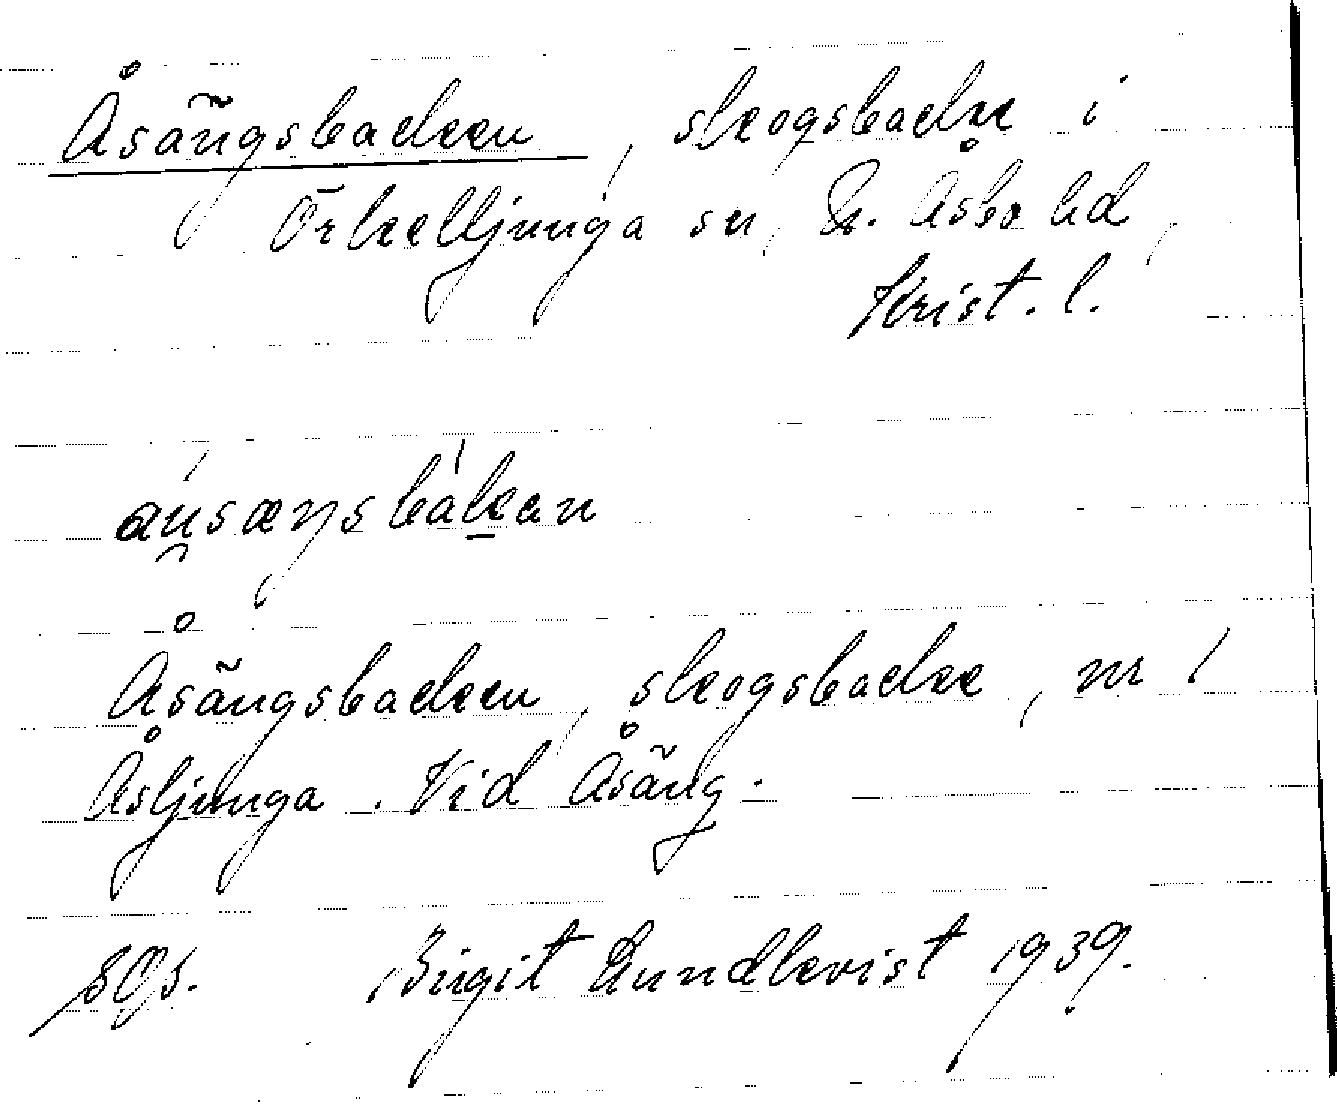 Åsängsbacken, skogsbacke i
Örkelljunga sn, N. Åsbo hd,
Krist. l.
Åsängsbacken, skogsbacke, nr 1
Åsljunga. Vid Åsäng.
Birgit Lundkvist 1939.